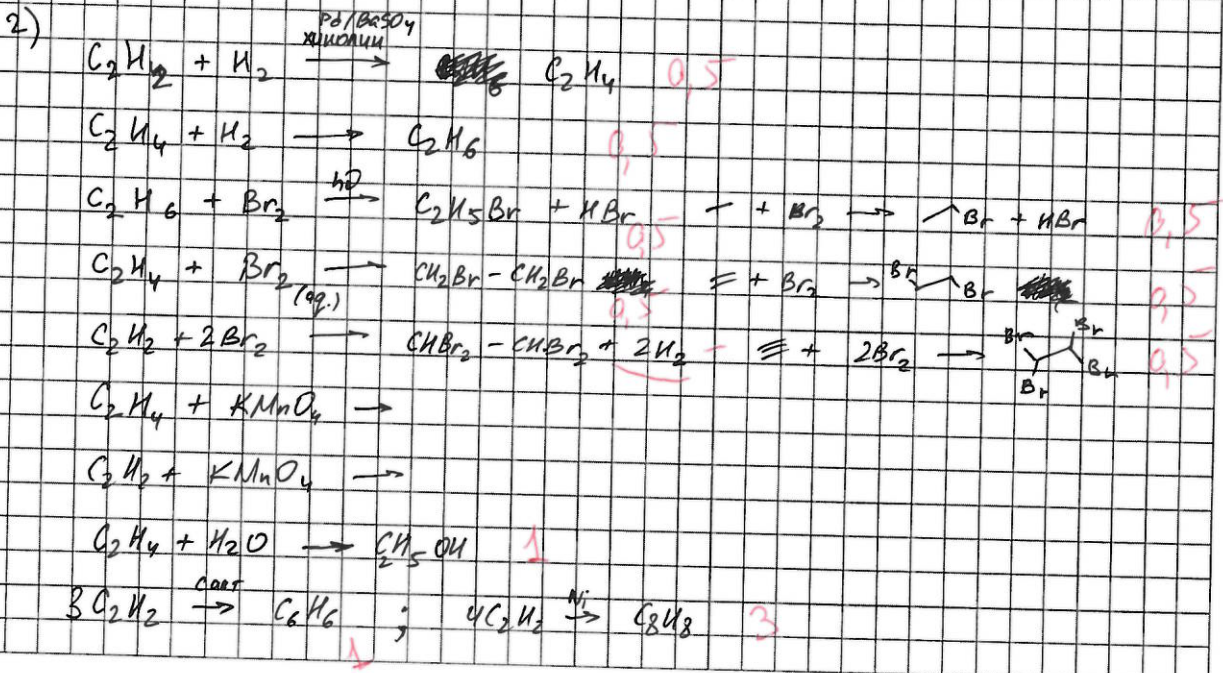 2)
C₂H₂ + H₂ —Pd/BaSO₄ хинолин→ C₂H₄ 0,5
C₂H₄ + H₂ → C₂H₆ 0,5
C₂H₆ + Br₂ —hν→ C₂H₅Br + HBr + Br₂ → Br + HBr 0,5
0,5
C₂H₄ + Br₂ (aq.) → CH₂Br - CH₂Br = + Br₂ → Br Br 0,5
0,5
C₂H₂ + 2Br₂ → CHBr₂ - CHBr₂ + 2H₂ - ≡ + 2Br₂ → Br Br Br Br 0,5
C₂H₄ + KMnO₄ →
C₂H₂ + KMnO₄ →
C₂H₄ + H₂O → C₂H₅OH 1
3C₂H₂ —Cакт→ C₆H₆ ; 4C₂H₂ —Ni→ C₈H₈ 3
1